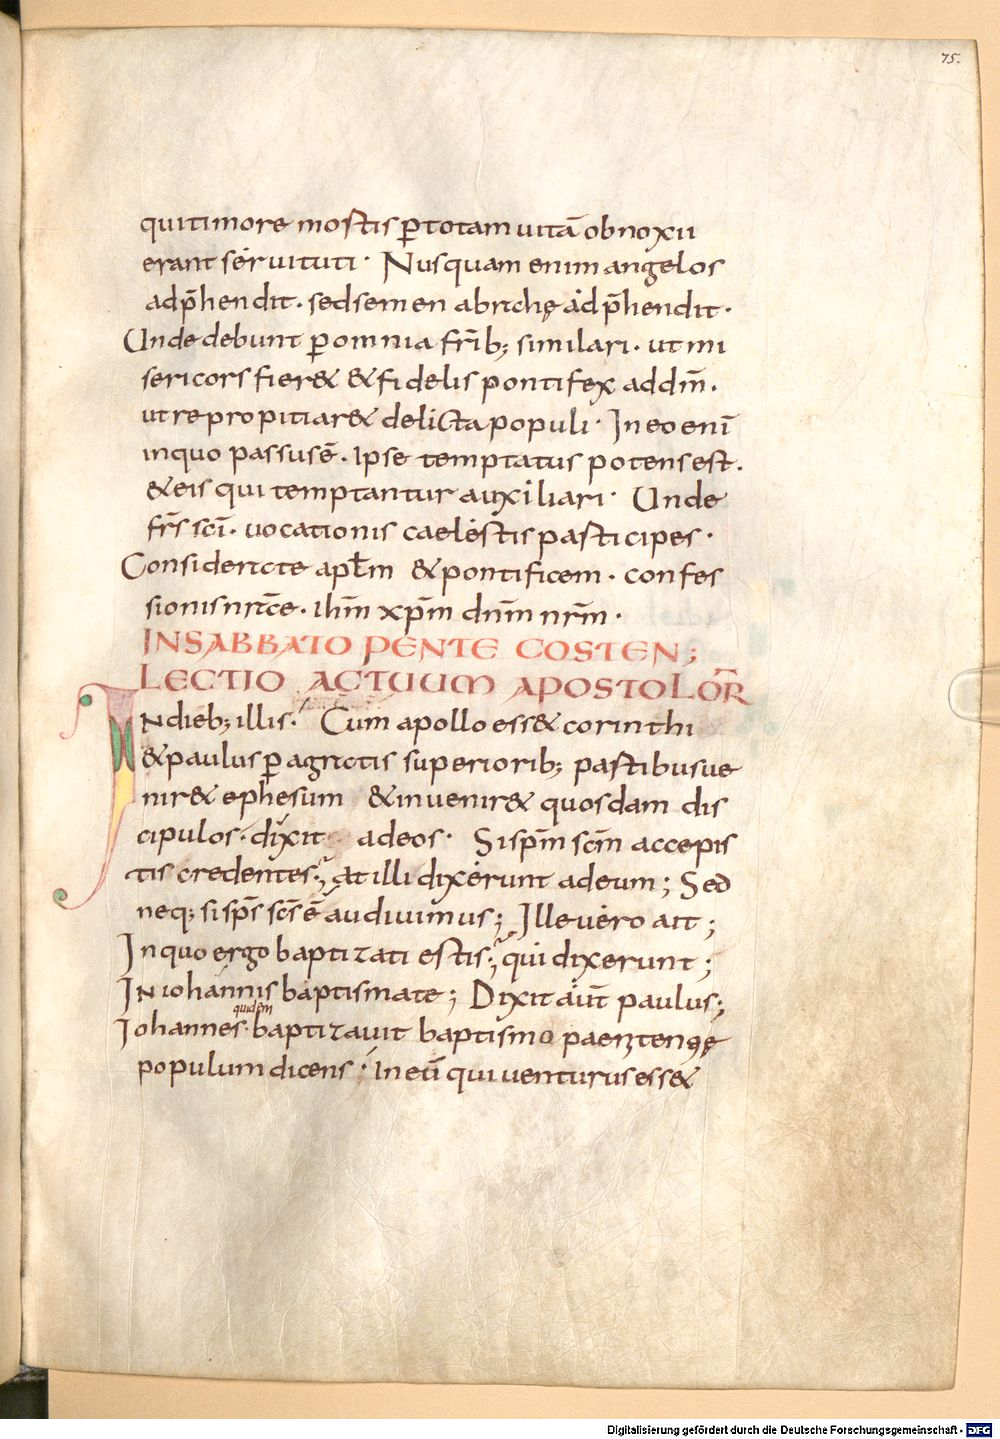 75.
qui timore mortis p̄ totam uitā obnoxii
erant seruituti· Nusquam enim angelos
adp̄hendit· sed semen abrahę adp̄hendit·
Unde debunt p̄ omnia fr̄ib; similari· ut mi
sericors fier& & fidelis pontifex ad dm̄·
ut repropitiar& delicta populi· In eo enī
in quo passus ē· ipse temptatus potens est·
& eis qui temptantur auxiliari· Unde
fr̄s sc̄i· uocationis caelestis participes·
Considerate apl̄m & pontificem· confes
sionis nr̄ae· ihm̄ xpm̄ dnm̄ nrm̄·
IN SABBATO PENTECOSTEN;
LECTIO ACTUUM APOSTOLOR̄
IN dieb; illis· Cum apollo ess& corinthi
& paulus p̄agratis superiorib; partibus ue
nir& ephesum & inuenir& quosdam dis
cipulos· dixit ad eos· Si spm̄ scm̄ accepis
tis credentes; at illi dixerunt ad eum; Sed
neq; si sps̄ scs̄ ē audiuimus; Ille uero ait;
In quo ergo baptizati estis; qui dixerunt;
IN iohannis baptismate; Dixit aūt paulus;
quidem
Iohannes· baptizauit baptismo paenitentię
populum dicens· In eū qui uenturus ess&
Digitalisierung gefördert durch die Deutsche Forschungsgemeinschaft - DFG